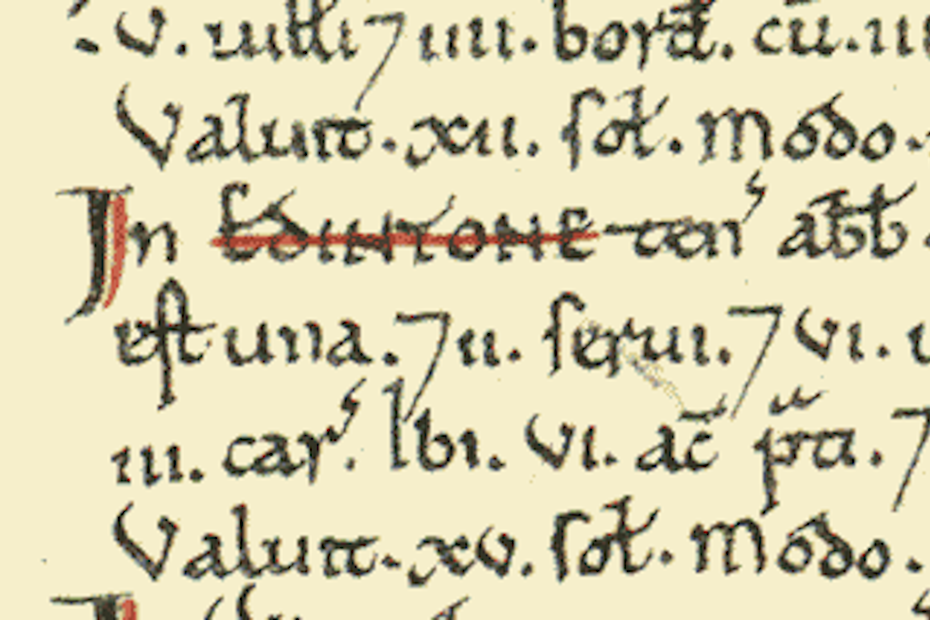 .v. uilli 7 iiii. bord̄. cū. ii
Valuit. xii. sol̄. Modo.
In Edintone ten' abb̄.
est una. 7 ii. serui. 7 vi.
iii. car'. Ibi. vi. ac̄ p̄ti. 7
Valuit. xv. sol̄. Modo.